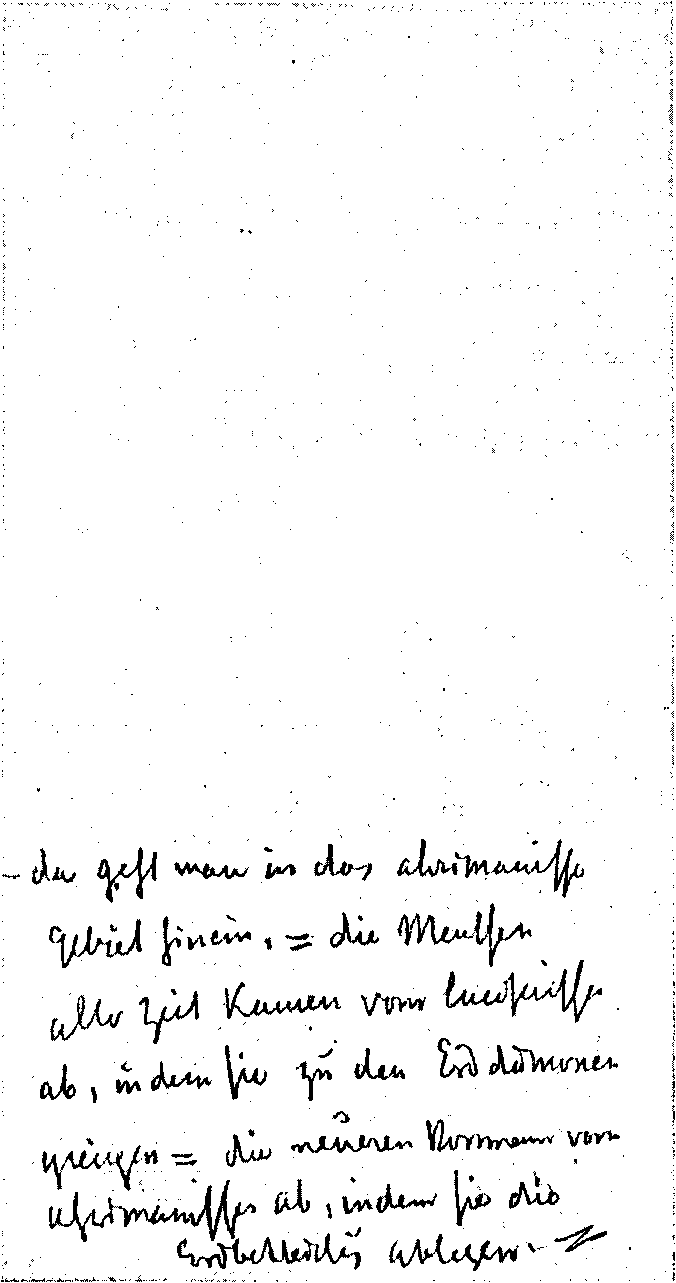 – da geht man in das ahrimanische
Gebiet hinein. = die Menschen
alter Zeit kamen vom luciferischen
ab, indem sie zu den Erddämonen
giengen = die neueren kommen vom
ahrimanischen ab, indem sie die
ablegen. –